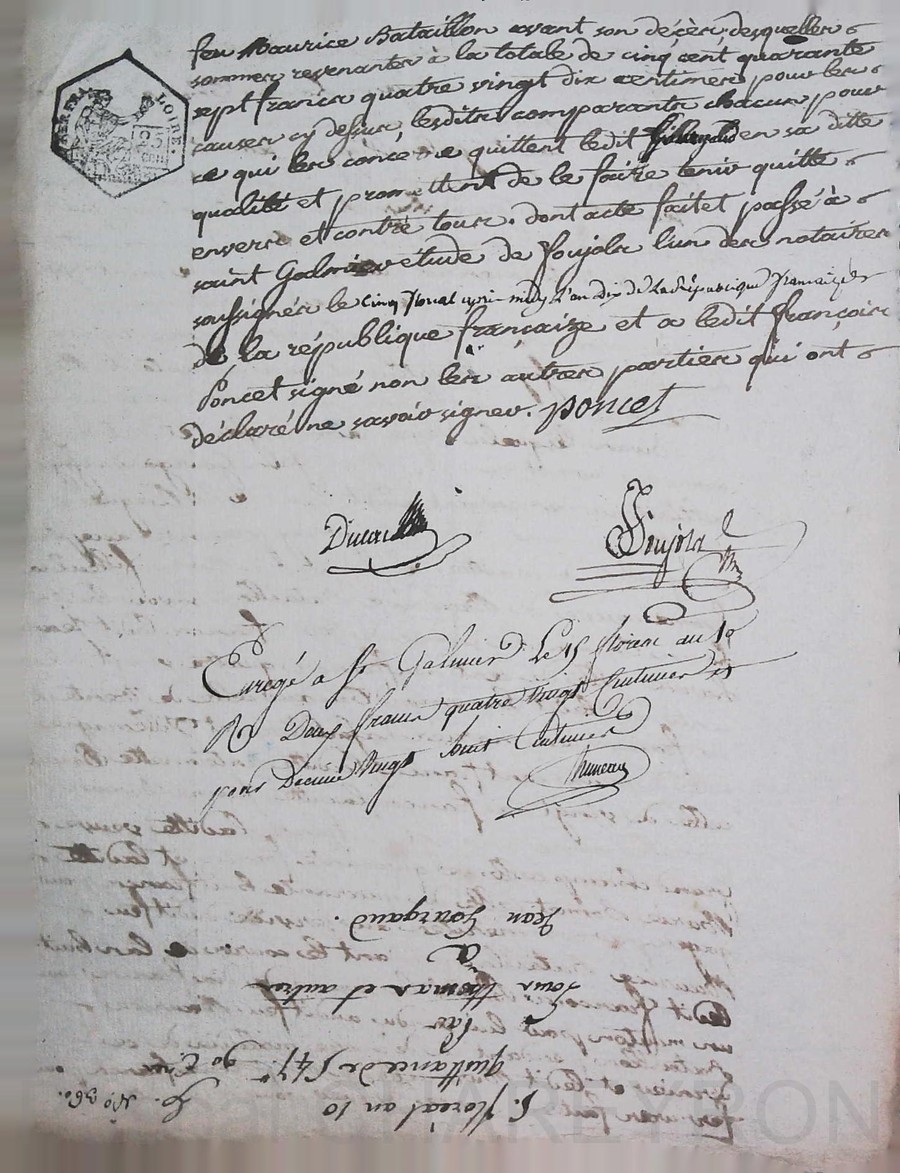 feu Maurice Bataillon avant son décèr desqueller
sommer revenanter à la totale de cinq cent quarante
sept francr quatre vingt dix centimer pour ler
causer cy dessur, lesditr comparantr chacun pour
ce qui ler concerne quittent ledit en sa ditte
qualité et promettent de le faire tenir quitte
enverr et contre tour. dont acte fait et passé à
saint Galmier etude de Foujolr l'un der notairer
soussignér le cinq floreal après midy l'an dix de la république françaize
de la république françaize et a ledit françoir
Poncet signé non ler autrer partier qui ont
déclaré ne savoir signer. poncet
Foujolr
Enregé a St Galmier Le 15 floreal an 10
R Deux francr quatre vingt Centimer et
pour Decime Vingt huit Centimer
LOIRE.
25
CEN
5. floreal an 10 No 360.
quittance de 547# 90 C.
Par
Thomar et autrer
à
Jean Gourgaud.